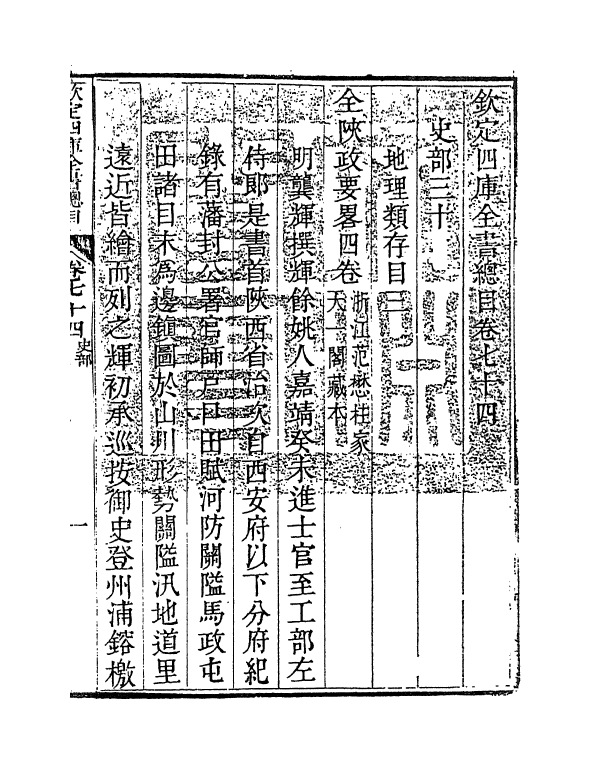 欽定四庫全書總目卷七十四
史部三十
地理類存目三
全陜政要畧四卷
浙江范懋柱家
天一閣藏本
明龔輝撰輝餘姚人嘉靖癸未進士官至工部左
侍郎是書首陜西省治次自西安府以下分府紀
錄有藩封公署官師戸口田賦河防關隘馬政屯
田諸目末爲邊鎮圖於山川形勢關隘汛地道里
遠近皆繪而列之輝初承巡按御史登州浦鎔檄
欽定四庫全書總目
卷七十四
史部
一